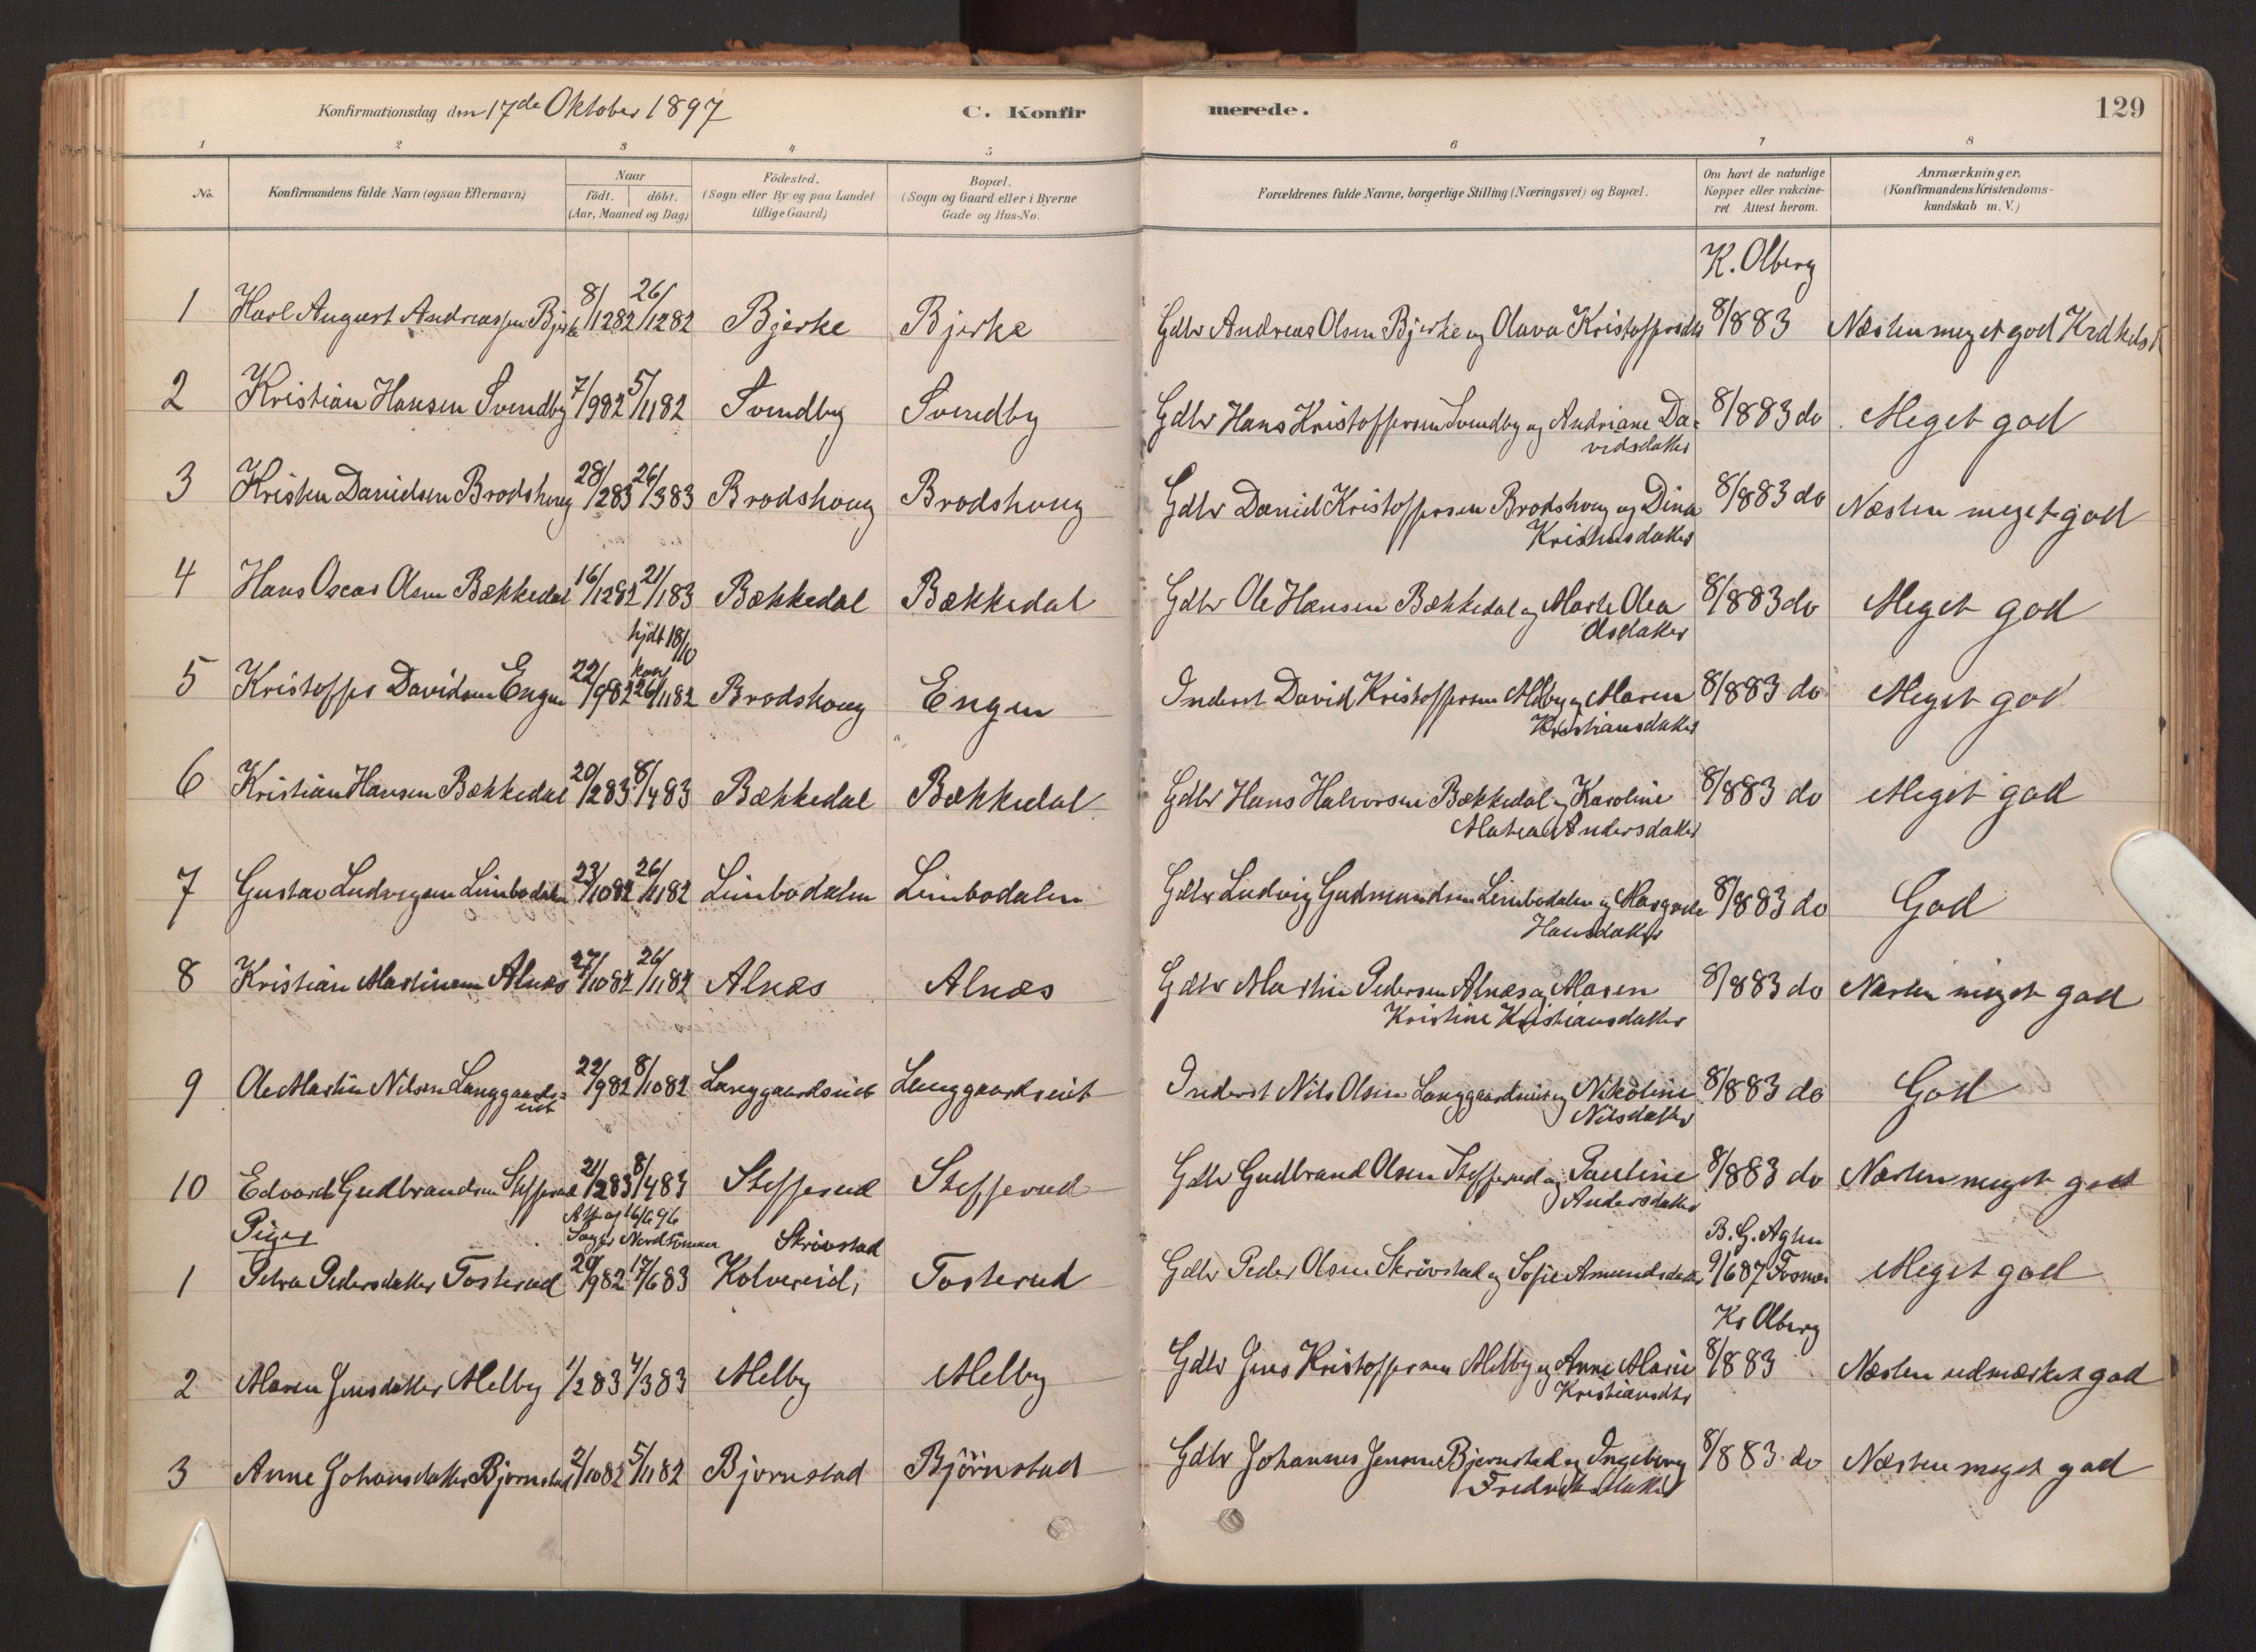 Konfirmationsdag den 17de Oktober 1897
C. Konfir
merede.
129
1 2 3 4 5 6 7 8
No.
Konfirmandens fulde Navn (ogsaa Efternavn)
Naar
födt. döbt.
(Aar, Maaned og Dag)
Födested.
(Sogn eller By og paa Landet
tillige Gaard)
Bopæl.
(Sogn og Gaard eller i Byerne
Gade og Hus-No.
Forældrenes fulde Navne, borgerlige Stilling (Næringsvei) og Bopæl.
Om havt de naturlige
Kopper eller vakcine-
ret. Attest herom.
Anmærkninger.
(Konfirmandens Kristendoms-
kundskab m. V.)
K. Olberg
1 Karl August Andreassen Bjerke 8/1282 26/1282 Bjerke Bjerke Gdbr Andreas Olsen Bjerke og Olava Kristoffersdtr 8/883 Næsten meget god
2 Kristian Hansen Svendby 7/982 5/1182 Svendby Svendby Gdbr Hans Kristoffersen Svendby og Andriane Da-
vidsdatter
8/883 do Meget god
3 Kristen Danielsen Brodshoug 28/283 26/383 Brodshoug Brodshoug Gdbr Daniel Kristoffersen Brodshoug og Dina
Kristensdatter
8/883 do Næsten meget god
4 Hans Oscar Olsen Bækkedal 16/1282 21/183 Bækkedal Bækkedal Gdbr Ole Hansen Bækkedal og Marte Olea
Olsdatter
8/883 do Meget god
hjdt 18/10
5 Kristoffer Davidsen Engen 22/982 26/1182 Brodshoug Engen Inderst David Kristoffersen Melby og Maren
Kristiansdatter
8/883 do Meget god
6 Kristian Hansen Bækkedal 20/283 8/483 Bækkedal Bækkedal Gdbr Hans Halvorsen Bækkedal og Karoline
Matea Andersdatter
8/883 do Meget god
7 Gustav Ludvigsen Limbodalen 23/1082 26/1182 Limbodalen Limbodalen Gdbr Ludvig Gudmundsen Limbodalen og Margrete
Hansdatter
8/883 do God
8 Kristian Martinsen Alnæs 27/1082 26/1182 Alnæs Alnæs Gdbr Martin Pedersen Alnæs og Maren
Kristine Kristiansdatter
8/883 do Næsten meget god
9 Ole Martin Nilsen Langgaards-
eiet
22/982 8/1082 Langgaardseiet Langgaardseiet Inderst Nils Olsen Langgaardseiet og Nikoline
Nilsdatter
8/883 do God
10 Edvard Gudbrandsen Stefferud 21/283 8/483 Stefferud Stefferud Gdbr Gudbrand Olsen Stefferud og Pauline
Andersdatter
8/883 do Næsten meget god
Piger
Att af 16/6 96
Skrivstad
B. G. Aglen
1 Petra Pedersdatter Tosterud 29/982 17/683 Kolvereid, Tosterud Gdbr Peder Olsen Skrivstad og Sofie Amundsdatter 9/687 Fosnes Meget god
Kr Olberg
2 Maren Jensdatter Melby 1/283 4/383 Melby Melby Gdbr Jens Kristoffersen Melby og Anne Marie
Kristiansdtr
8/883 Næsten udmærket god
3 Anne Johansdatter Bjørnstad 2/1082 5/1182 Bjørnstad Björnstad Gdbr Johannes Jensen Bjørnstad og Ingeborg
Fredriksdatter
8/883 do Næsten meget god